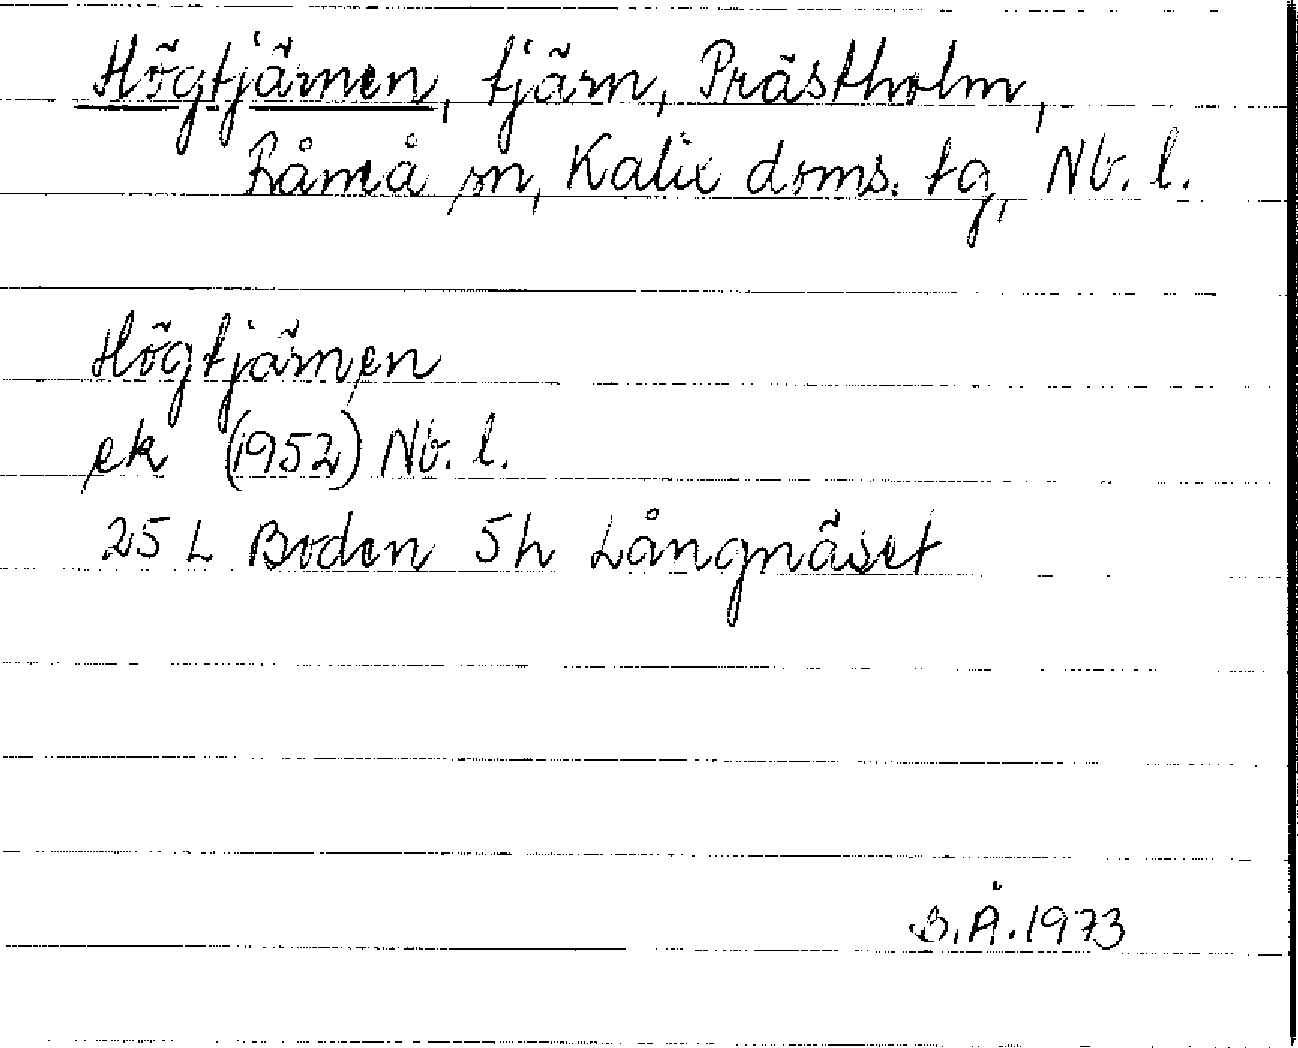 Högtjärnen, tjärn, Prästholm,
Råneå sn, Kalix doms. tg, Nb. l.
Högtjärnen
ek (1952) Nb. l.
25 L Boden 5h Långnäset
B.Å. 1973